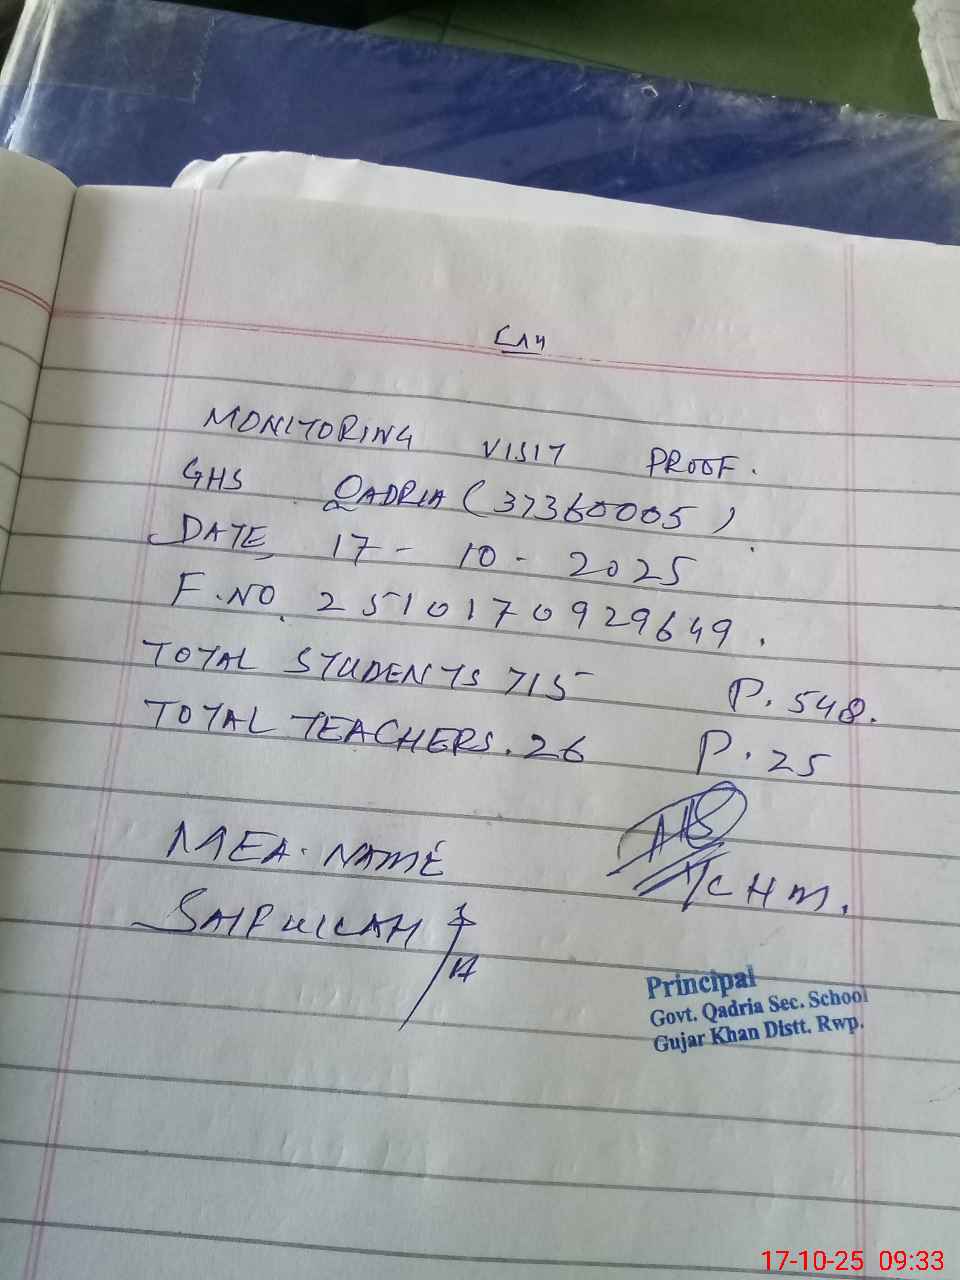 MONITORING VISIT PROOF.
GHS QADRIA (37360005)
DATE 17-10-2025
F.NO. 2510170929649.
TOTAL STUDENTS 715 P. 548.
TOTAL TEACHERS. 26 P. 25
MEA. NAME
SAIFULLAH
I/C HM.
Principal
Govt. Qadria Sec. School
Gujar Khan Distt. Rwp.
17-10-25 09:33